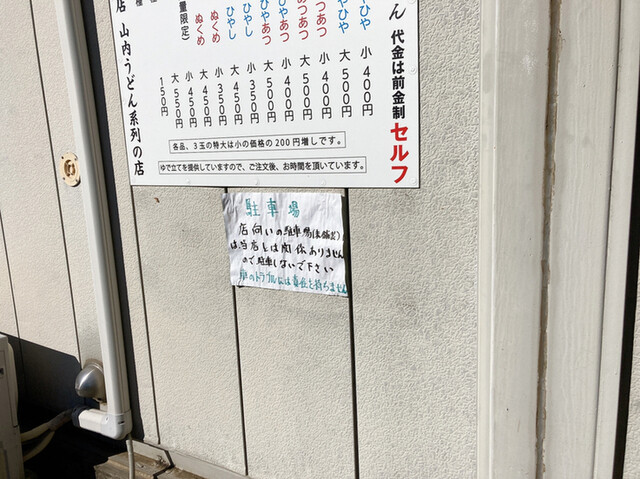 ん 代金は前金制 セルフ
ひや 小 400円
ひや 大 500円
あつ 小 400円
あつ 大 500円
ひやあつ 小 400円
ひやあつ 大 500円
ひやし 小 350円
ひやし 大 450円
ぬくめ 小 350円
ぬくめ 大 450円
量限定) 小 450円
大 550円
150円
店 山内うどん系列の店
各品、3玉の特大は小の価格の200円増しです。
ゆで立てを提供していますので、ご注文後、お時間を頂いています。
駐車場
店向いの駐車場
は、当店とは関係ありません
ので駐車しないで下さい